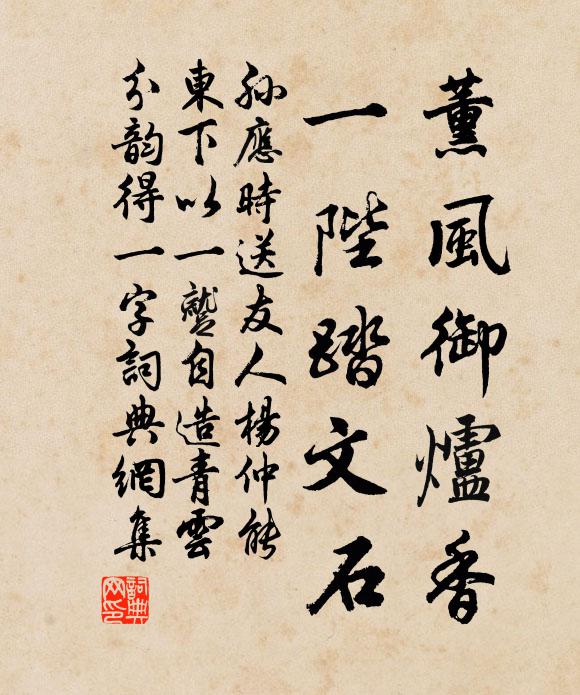 薰風御爐香
一陛踏文石
孫應時送友人楊仲能
東下以一蹔自造青雲
分韵得一字詞典網集
詞典网印